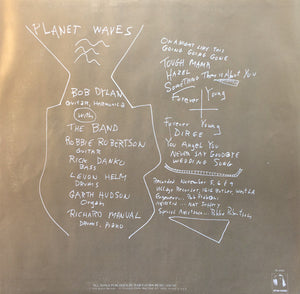 PLANET WAVES
BOB DYLAN
Guitar, Harmonica
With
THE BAND
ROBBIE ROBERTSON
GUITAR
RICK DANKO
BASS
LEVON HELM
DRUMS
GARTH HUDSON
Organ
RICHARD MANUAL
DRUMS, PIANO
ON A NIGHT LIKE THIS
GOING GOING GONE
TOUGH MAMA
HAZEL
SOMETHING There is About You
Forever Young
Forever Young
DIRGE
You Angel You
NEVER SAY GOODBYE
WEDDING SONG
Recorded November 5, 6 & 9
Village Recorder,
Engineer: Rob Fraboni
Assisted: Nat Jeffrey
Special Assistance: Robbie Robertson